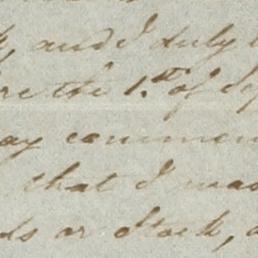 and I duly
the 1st of
commen
that I was
or stock,